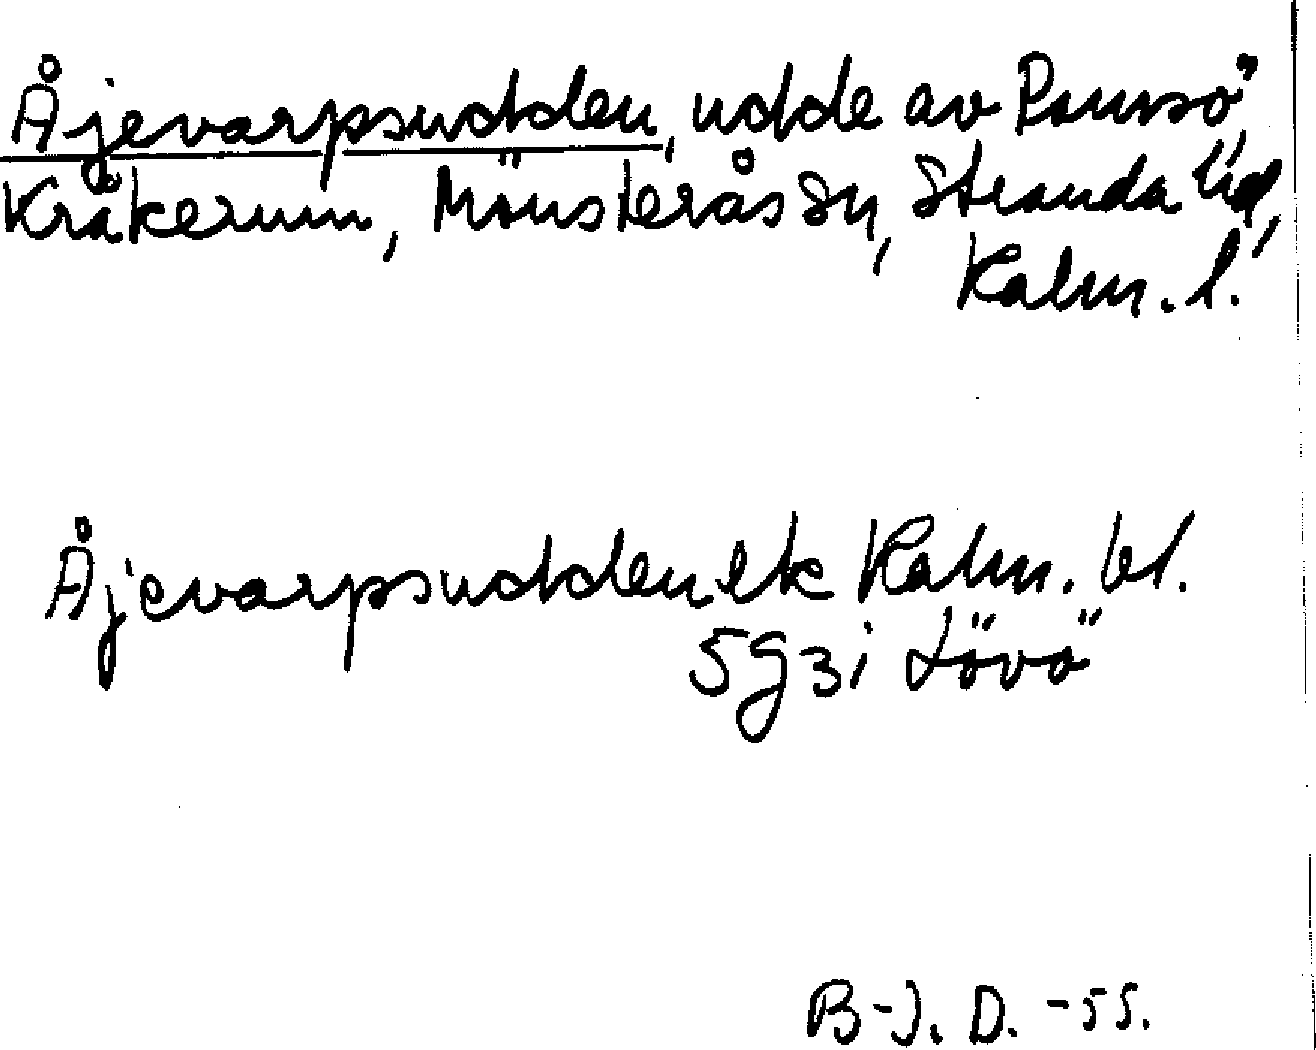 Åjevarpsudden, udde av Runnsö,
Kråkerum, Mönsterås sn, Stranda hd,
Kalm. l.
Åjevarpsudden ek Kalm. bl.
5 g 3 i Lövö
B-J. D. -55.